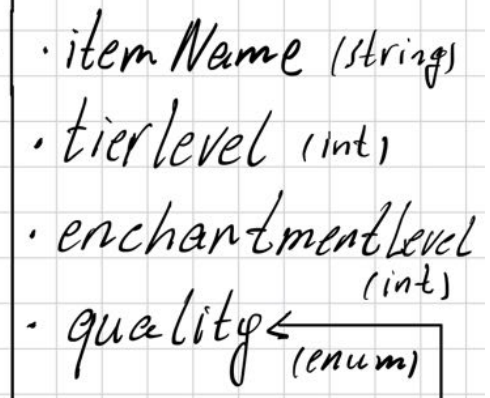 · itemName (string)
· tierlevel (int)
· enchantmentLevel
(int)
· quality
(enum)